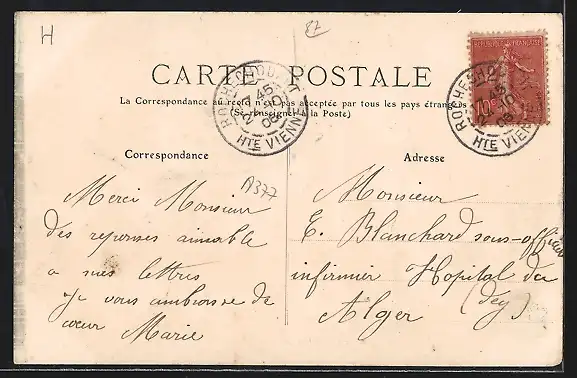 H
87
REPUBLIQUE FRANÇAISE
10c
CARTE POSTALE
La Correspondance au recto n'est pas acceptée par tous les pays étrangers
(Se renseigner à la Poste)
ROCHECHOUART
45
10
05
HTE VIENNE
ROCHECHOUART
45
10
05
HTE VIENNE
Correspondance
A377
Merci Monsieur
des reponses aimable
a mes lettres
Je vous
de
cœur Marie
Adresse
Monsieur
E. Blanchard sous-officier
infirmier Hopital du
(dey)
Alger